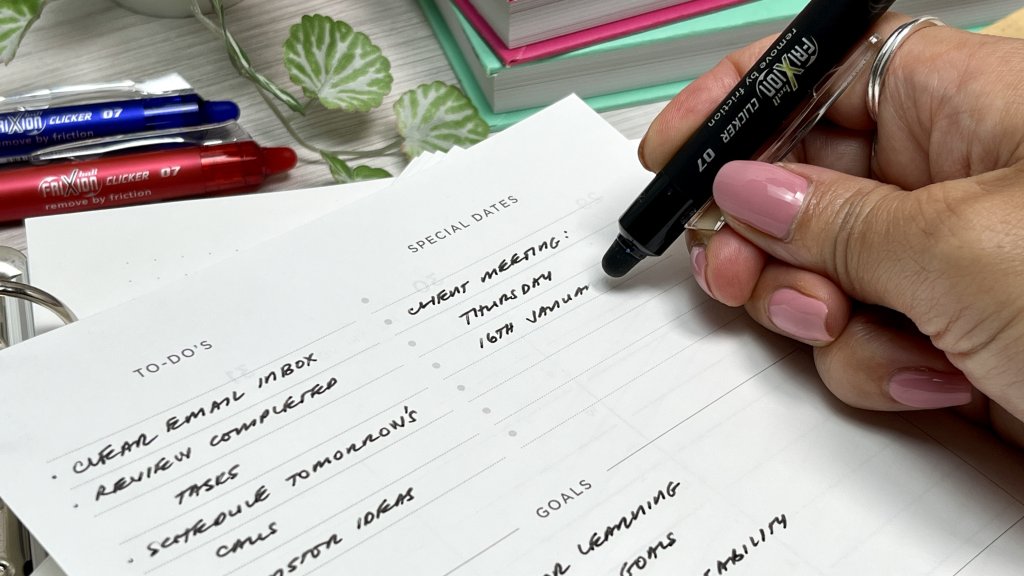 FRIXION ball CLICKER 07
remove by friction
FRIXION ball CLICKER 07
remove by friction
FRIXION ball CLICKER 07
remove by friction
SPECIAL DATES
CLIENT MEETING:
THURSDAY
16TH JANUA
TO-DO'S
• CLEAR EMAIL INBOX
• REVIEW COMPLETED
TASKS
• SCHEDULE TOMORROW'S
CALLS
IDEAS
GOALS
LEARNING
GOALS